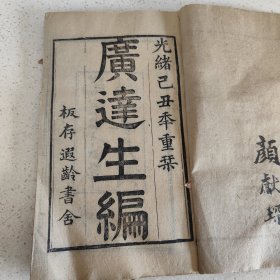 光緒己丑年重栞
廣達生編
板存遐齡書舍
顏獻